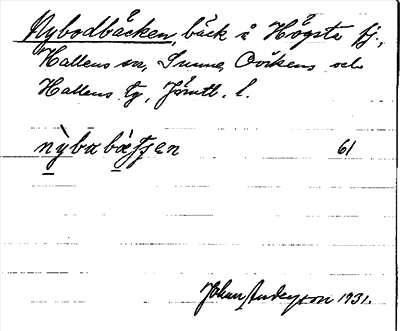 Nybodbäcken, bäck å Högsta fj.,
Hallens sn, Sunne, Ovikens och
Hallens tg, Jämtl. l.
nỳba bætʃen 61
Johan Anderson 1931.